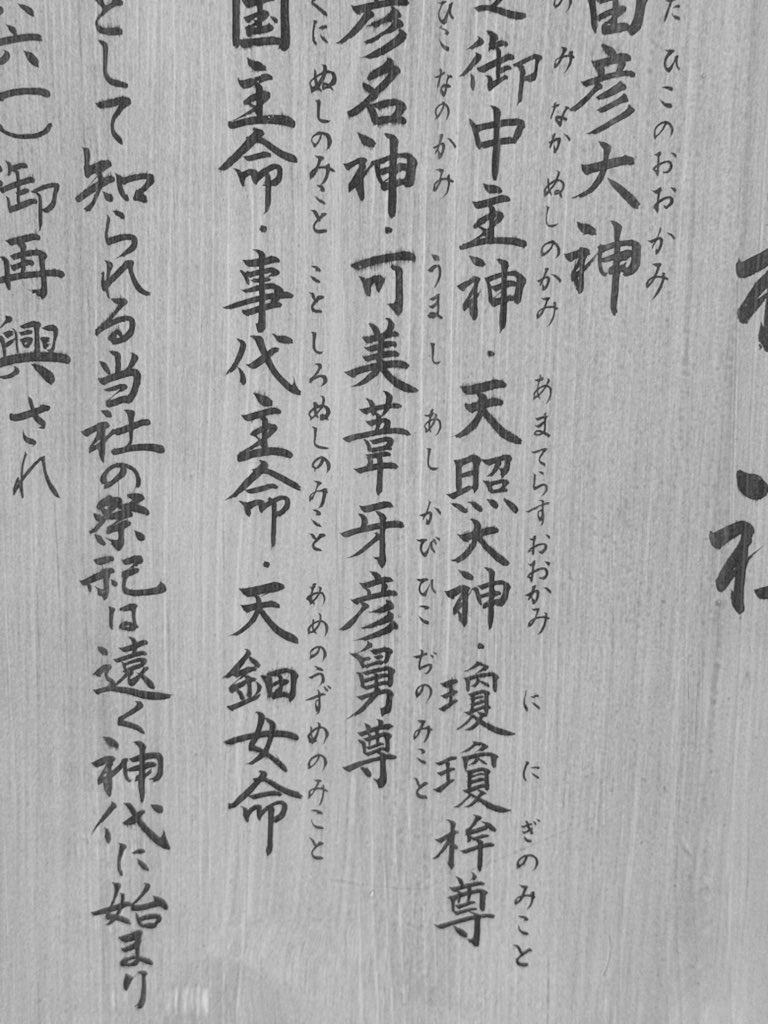 社
田彦大神
たひこのおおかみ
之御中主神・天照大神・瓊瓊桙尊
のみなかぬしのかみ あまてらすおおかみ ににぎのみこと
彦名神・可美葦牙彦舅尊
ひこなのかみ うましあしかびひこぢのみこと
国主命・事代主命・天鈿女命
くにぬしのみこと ことしろぬしのみこと あめのうずめのみこと
として知られる当社の祭祀は遠く神代に始まり
六一）御再興され